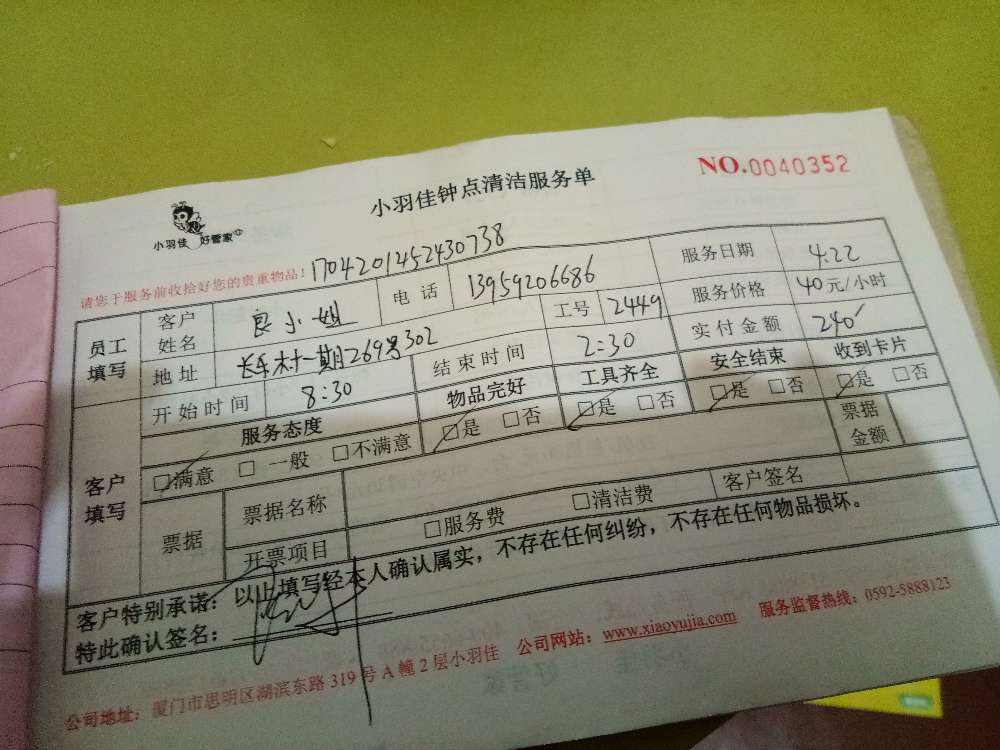 NO.0040352
小羽佳钟点清洁服务单
小羽佳 好管家
请您于服务前收拾好您的贵重物品！ 1704201452430738
员工填写 客户姓名 良小姐 电话 13959206686 服务日期 4.22
地址 长车村一期269号302 工号 2449 服务价格 40元/小时
开始时间 8:30 结束时间 2:30 实付金额 240
客户填写 服务态度 物品完好 工具齐全 安全结束 收到卡片
□满意 □一般 □不满意 □是 □否 □是 □否 □是 □否 □是 □否
票据 票据名称 票据金额
开票项目 □服务费 □清洁费 客户签名
客户特别承诺：以上填写经本人确认属实，不存在任何纠纷，不存在任何物品损坏。
特此确认签名：
公司地址：厦门市思明区湖滨东路319号A幢2层小羽佳 公司网站：www.xiaoyujia.com 服务监督热线：0592-5888123